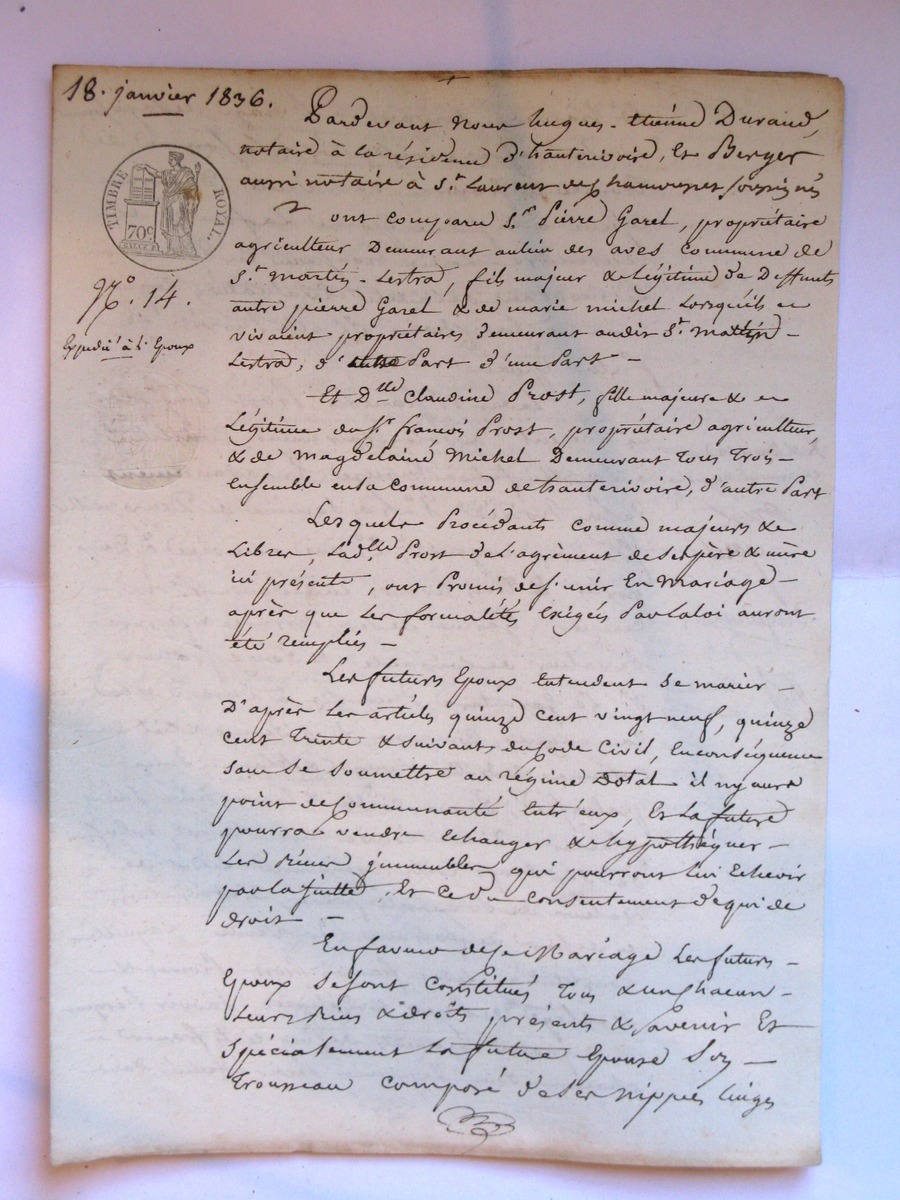 18. janvier 1836.
Pardevant Nous hugues-Etiénne Durand,
notaire à la résidence d'hauterivoire, Et Berger
aussi notaire à St. Laurent de Chamousset soussignés
TIMBRE ROYAL.
70c
ont comparu Sr. Piérre Garel, propriétaire
agriculteur Demeurant au lieu des aves commune de
St. Martin-Lestra, fils majeur & légitime de Deffunts
No. 14.
autre pierre Garel & de marie michel Lorsqu'ils
vivaient propriétaires demeurant audit St. Martin-
Expédié à l'Epoux
Lestra, d'une Part-
Et Dlle Claudine Prost, fille majeure &
Légitime du Sr. francois Prost, propriétaire agriculteur,
& de Magdelaine Michel Demeurant tous trois-
Ensemble en la Commune de hauterivoire, d'autre Part
Lesquels Procédants comme majeurs &
Libres, Ladlle Prost de l'agrèment de ses père & mère
ici présents, ont Promis de s'unir En Mariage-
après que Les formalités exigés Par la loi auront
été remplies-
Les futurs Epoux Entendent se marier-
D'après Les articles quinze cent vingt neuf, quinze
cent Trente & suivants du Code Civil, En conséquence
sans se soumettre au régime Dotal il n'y aura
point de Communauté Entr'eux, Et La future
pourra vendre Echanger & hypothéquer-
Les Biens immeubles qui pourront lui Echeoir
par la suitte, Et ce du consentement de qui de
droit-
En faveur de ce Mariage Les futurs-
Epoux se sont Constitués Tous & un Chacun-
Leurs Biens & droits présents & avenir Et
Spécialement La future Epouse Son-
Trousseau composé de ses nippes linges